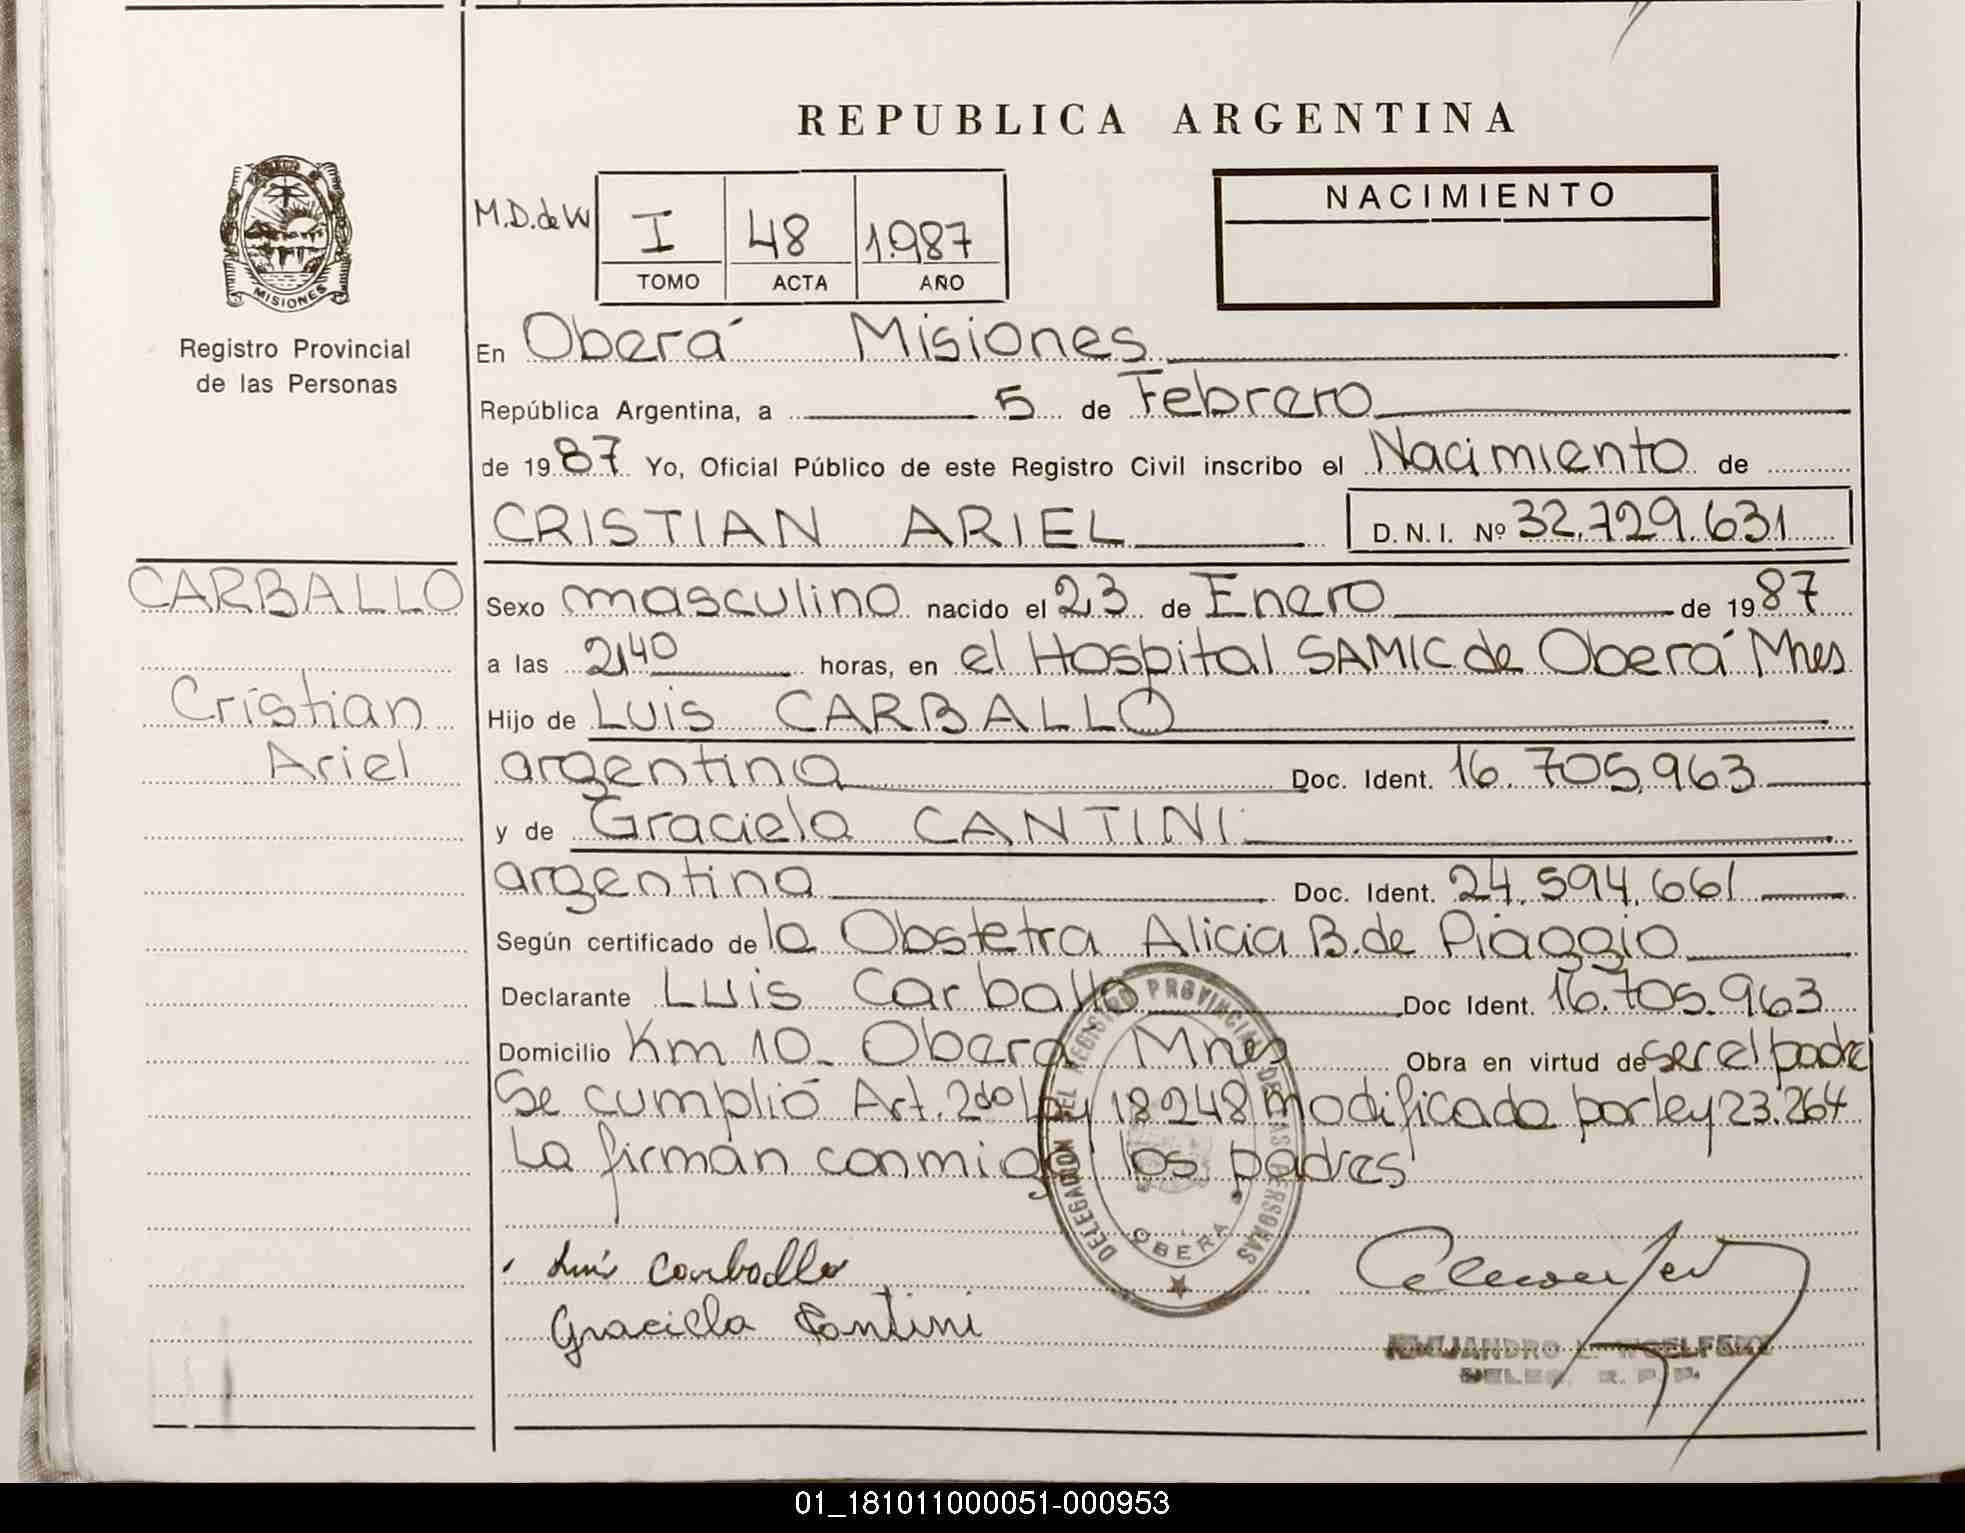 REPUBLICA ARGENTINA
MISIONES
Registro Provincial
de las Personas
M.D.de W
I 48 1.987
TOMO ACTA AÑO
NACIMIENTO
En Oberá Misiones
República Argentina, a 5 de Febrero
de 1987 Yo, Oficial Público de este Registro Civil inscribo el Nacimiento de
CRISTIAN ARIEL D.N.I. Nº 32.729.631
CARBALLO
Cristian
Ariel
Sexo masculino nacido el 23 de Enero de 1987
a las 21,40 horas, en el Hospital SAMIC de Oberá Mnes
Hijo de Luis CARBALLO
argentina Doc. Ident. 16.705.963
y de Graciela CANTINI
argentina Doc. Ident. 24.594.661
Según certificado de la Obstetra Alicia B. de Piaggio
Declarante Luis Carballo Doc Ident. 16.705.963
Domicilio Km 10_ Oberá Mnes Obra en virtud de ser el padre
Se cumplió Art. 2do Ley 18248 modificada por ley 23.264
La firman conmigo los padres
DELEGACION DEL REGISTRO PROVINCIAL DE LAS PERSONAS
OBERA
Luis Carballo
Graciela Cantini
DELEG. R. P. P.
01_181011000051-000953